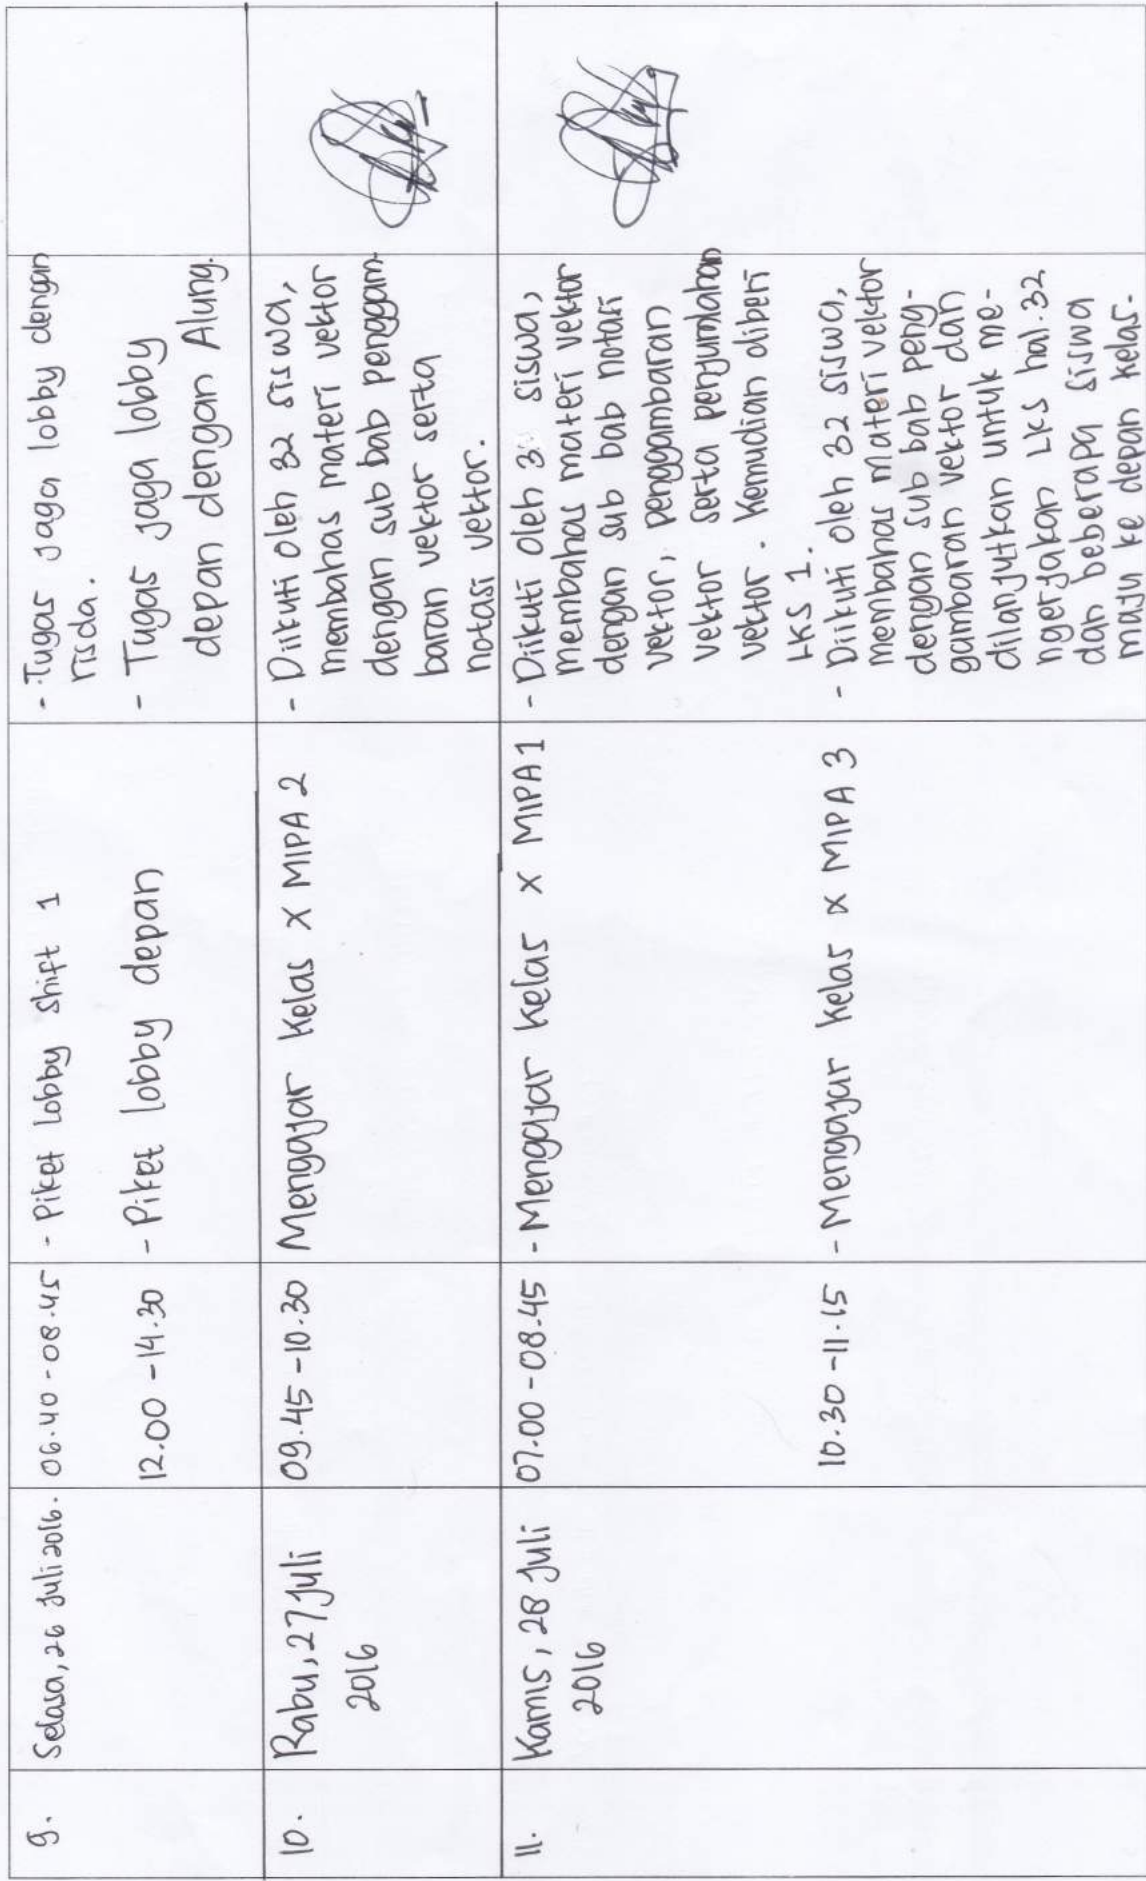 9.
Selasa, 26 Juli 2016.
06.40 - 08.45
- Piket Lobby Shift 1
- Tugas jaga lobby dengan
risda.
12.00 - 14.30
- Piket lobby depan
- Tugas jaga lobby
depan dengan Alung.
10.
Rabu, 27 Juli
2016
09.45 - 10.30
Mengajar Kelas X MIPA 2
- Diikuti oleh 32 siswa,
membahas materi vektor
dengan sub bab penggam-
baran vektor serta
notasi vektor.
11.
Kamis, 28 Juli
2016
07.00 - 08.45
- Mengajar Kelas X MIPA 1
- Diikuti oleh siswa,
membahas materi vektor
dengan sub bab notasi
vektor, penggambaran
vektor serta penjumlahan
vektor. Kemudian diberi
LKS 1.
10.30 - 11.15
- Mengajar Kelas X MIPA 3
- Diikuti oleh 32 siswa,
membahas materi vektor
dengan sub bab peng-
gambaran vektor dan
dilanjutkan untuk me-
ngerjakan LKS hal. 32
dan beberapa siswa
maju ke depan kelas.